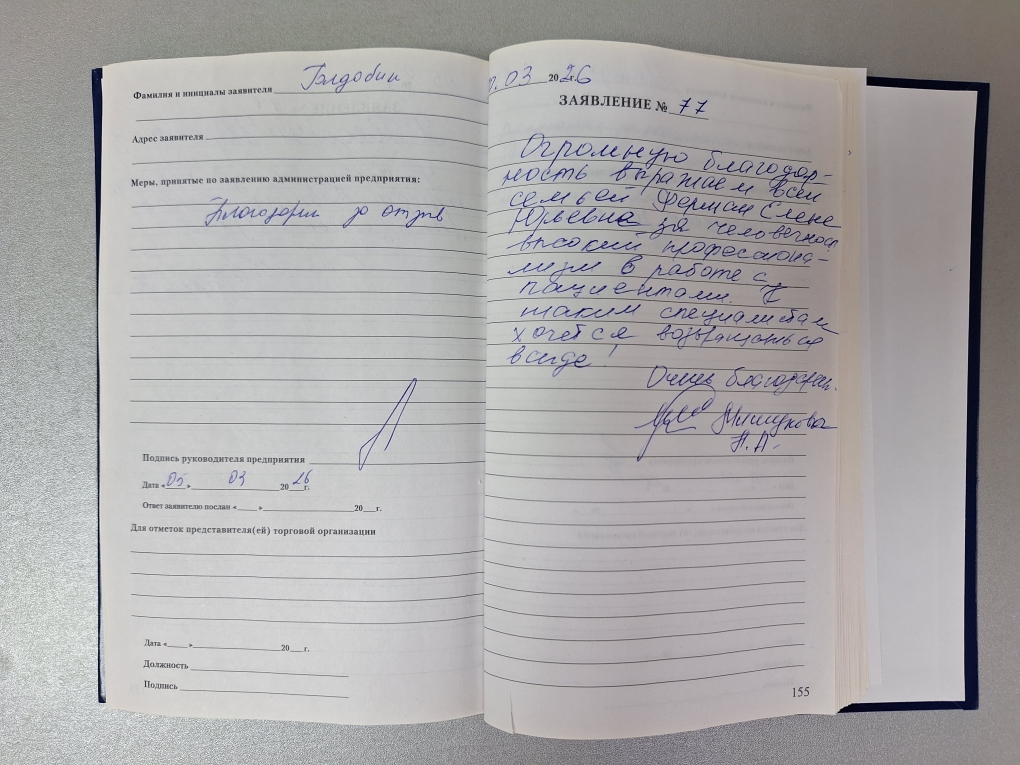 Фамилия и инициалы заявителя Голдобин
Адрес заявителя
Меры, принятые по заявлению администрацией предприятия:
Благодарим за отзыв
Подпись руководителя предприятия
Дата «05» 03 2026 г.
Ответ заявителю послан «___» 20___г.
Для отметок представителя(ей) торговой организации
Дата «___» 20___г.
Должность
Подпись
.03 2026 г.
ЗАЯВЛЕНИЕ № 77
Огромную благодар-
ность выражаем всей
семьёй Ферман Елене
Юрьевне за человечное
высокий професиона-
лизм в работе с
пациентами. К
таким специалистам
хочется возвращаться
всегда!
Очень благодарен.
Мишукова
Н.А.
155